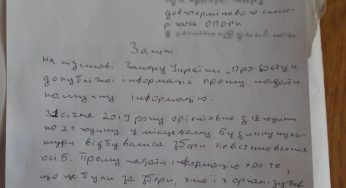 довготермінового спосте-
рігача ОПОРИ
Запит
На підставі Закону України „Про доступ
до публічної інформації" прошу надати
наступну інформацію:
січня 2019 року орієнтовно з 18 години
по 21 годину у місцевому будинку куль-
тури відбувалися збори невстановлених
осіб. Прошу надати інформацію про те,
що це були за збори, хто їх організував